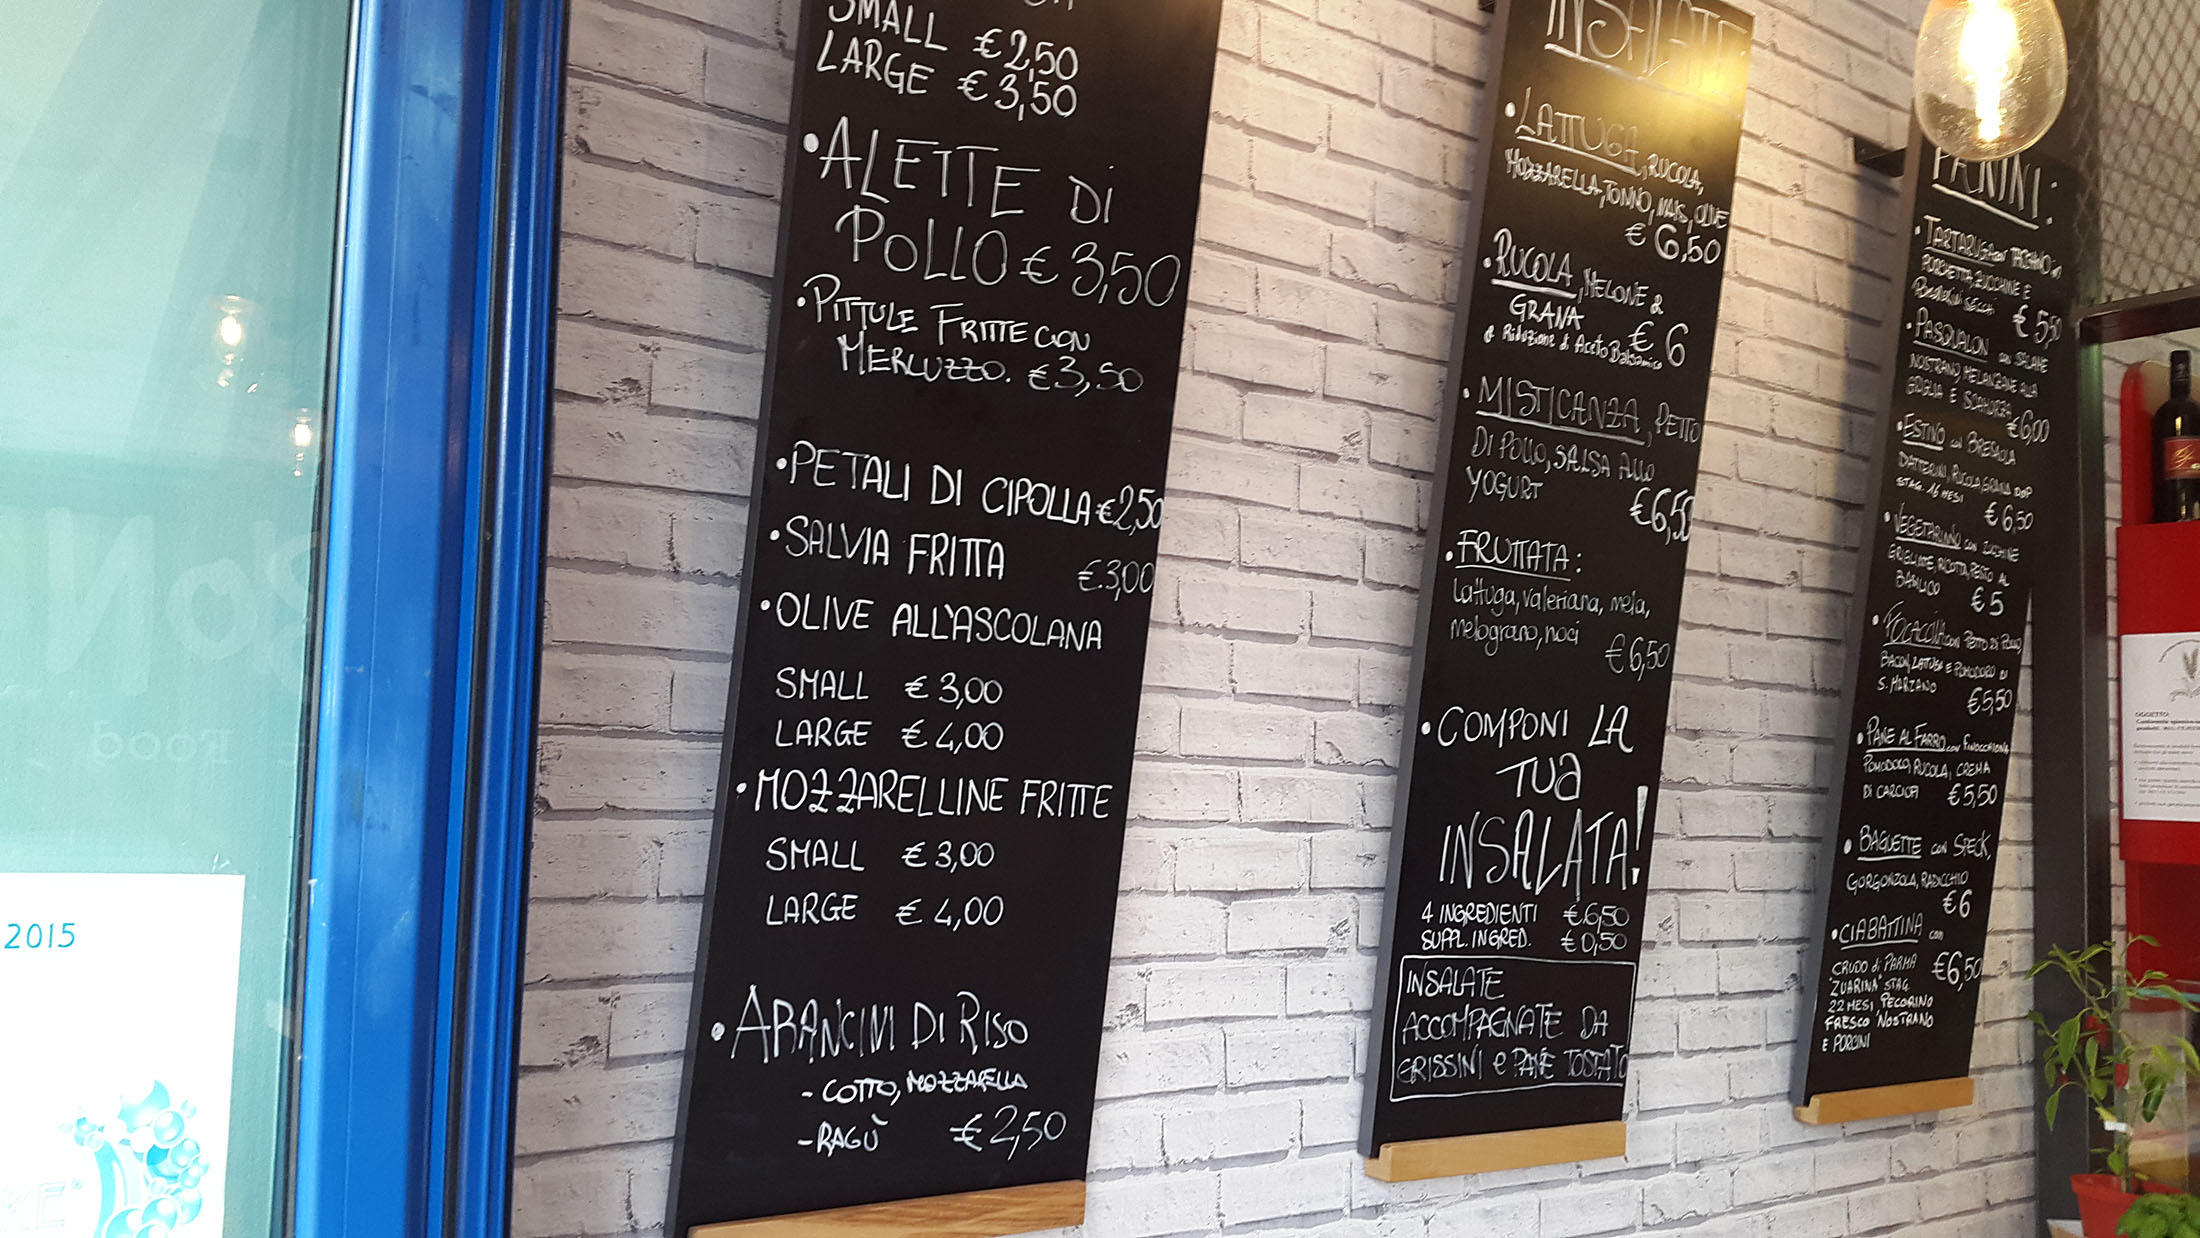 SMALL €2,50
LARGE €3,50
•ALETTE Di
POLLO € 3,50
•PITTULE FRITTE CON
MERLUZZO. €3,50
•PETALI DI CIPOLLA €2,50
•SALVIA FRITTA €.3,00
•OLIVE ALL'ASCOLANA
SMALL € 3,00
LARGE € 4,00
•MOZZARELLINE FRITTE
SMALL € 3,00
LARGE € 4,00
•ARANCINI DI RISO
- COTTO, MOZZARELLA
- RAGÙ € 2,50
INSALATE:
•LATTUGA, RUCOLA,
MOZZARELLA, TONNO, MAIS, OLIVE
€ 6,50
•RUCOLA, MELONE &
GRANA € 6
& Riduzione di Aceto Balsamico
•MISTICANZA, PETTO
DI POLLO, SALSA ALLO
YOGURT €6,50
•FRUTTATA:
Lattuga, valeriana, mela,
melograno, noci €6,50
•COMPONI LA
TUA
INSALATA!
4 INGREDIENTI €6,50
SUPPL. INGRED. €0,50
INSALATE
ACCOMPAGNATE DA
GRISSINI e PANE TOSTATO
PANINI:
•TARTARUGA CON
PORCHETTA, ZUCCHINE E
POMODORINI SECCHI € 5,50
•PASQUALON CON SALAME
NOSTRANO, MELANZANE ALLA
€6,00
•ESTIVO CON BRESAOLA
DATTERINI, RUCOLA, GRANA DOP
STAG. 16 MESI € 6,50
•VEGETARIANO CON ZUCCHINE
GRIGLIATE, RICOTTA, PESTO AL
BASILICO € 5
•FOCACCINA CON PETTO DI POLLO,
BACON, LATTUGA E POMODORO DI
S. MARZANO €5,50
•PANE AL FARRO CON FINOCCHIONA
POMODORO, RUCOLA, CREMA
DI CARCIOFI €5,50
•BAGUETTE CON SPECK,
GORGONZOLA, RADICCHIO
€6
•CIABATTINA CON
CRUDO di PARMA €6,50
"ZUARINA" STAG.
22 MESI, PECORINO
FRESCO NOSTRANO
E PORCINI
OGGETTO:
Food
2015